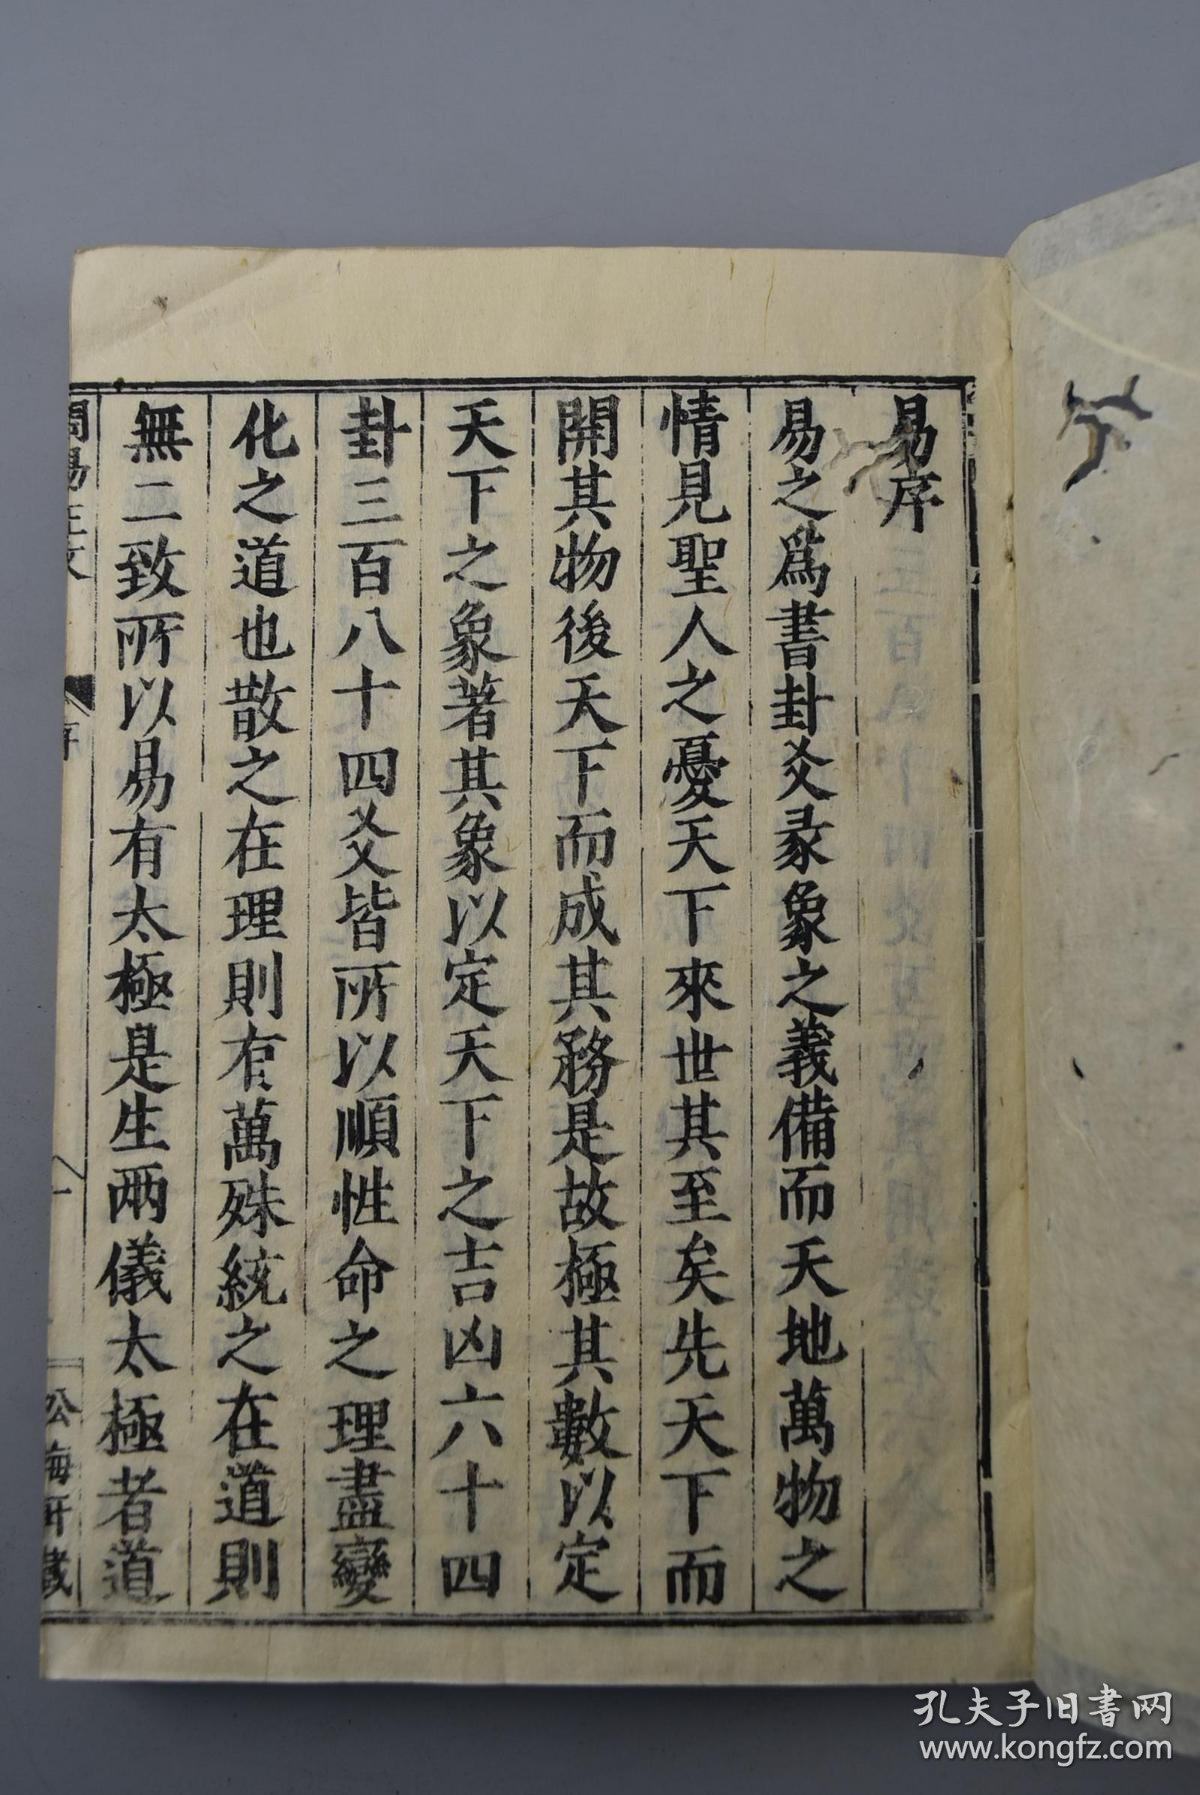 易序
易之爲書卦爻彖象之義備而天地萬物之
情見聖人之憂天下來世其至矣先天下而
開其物後天下而成其務是故極其數以定
天下之象著其象以定天下之吉凶六十四
卦三百八十四爻皆所以順性命之理盡變
化之道也散之在理則有萬殊統之在道則
無二致所以易有太極是生兩儀太極者道
周易正文
序
一
孔夫子旧书网
www.kongfz.com